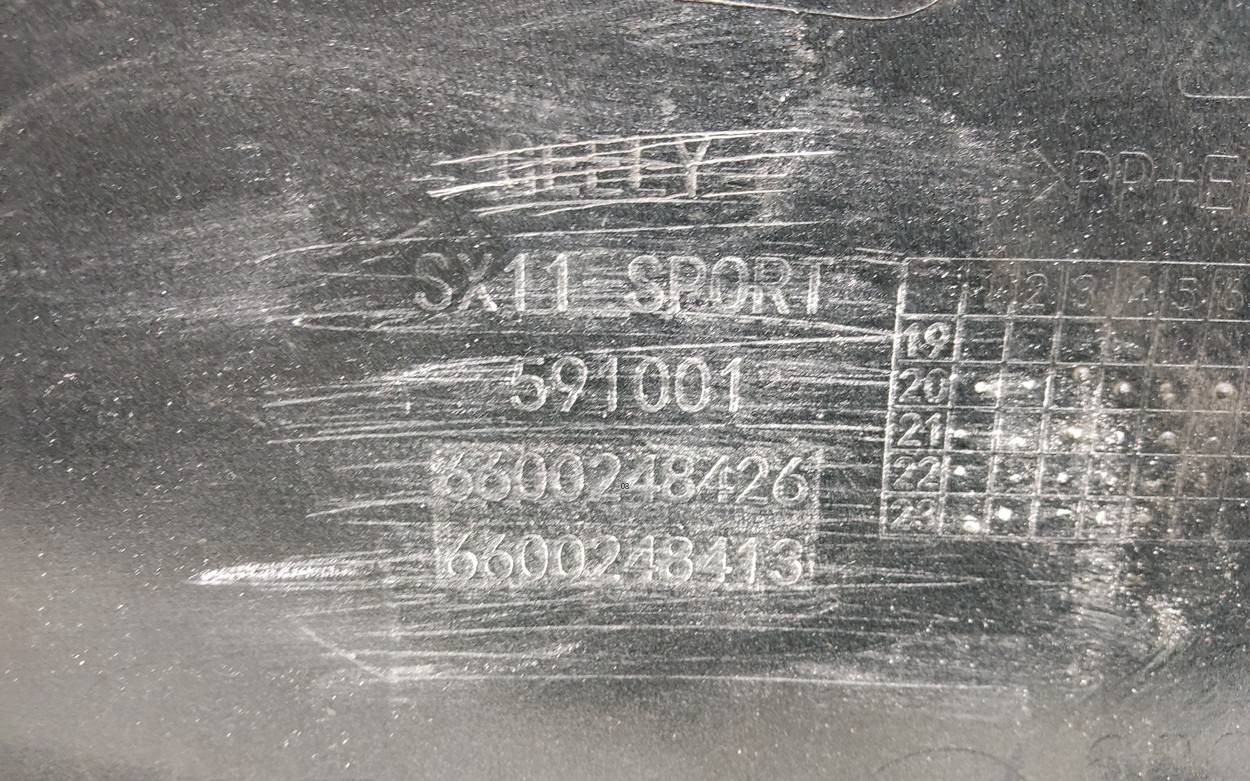 GEELY
>PP+E
SX11 SPORT
591001
6600248426
6600248413
1 2 3 4 5 6
19
20
21
22
23